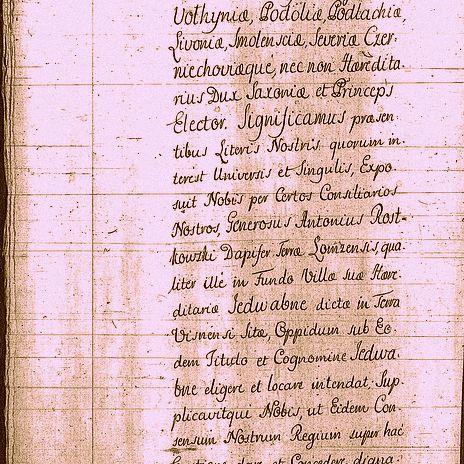 Vothyniæ, Podoliæ, Podlachiæ,
Livoniæ, Smolensciæ, Severiæ Czer-
niechoviæque, nec non Hæredita
rius Dux Saxoniæ et Princeps
Elector. Significamus præsen
tibus Literis Nostris quorum in
terest Universis et Singulis, Expo
suit Nobis per Certos Consiliarios
Nostros, Generosus Antonius Rost-
kowski Dapifer Terræ Lomzensis, qua
liter ille in Fundo Villæ suæ Hære
ditariæ Jedwabne dictæ in Terra
Visnensi Sitæ, Oppidum sub Eo-
dem Titulo et Cognomine Jedwa-
bne eligere et locare intendat; Sup
plicavitqui Nobis, ut Eidem Con
sensum Nostrum Regium super hac
dare et Concedere digna